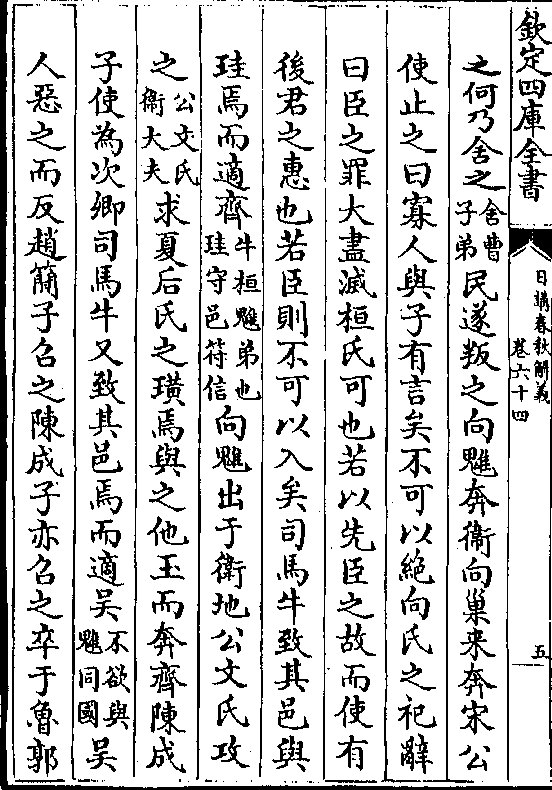 欽定四庫全書
日講春秋解義
卷六十四
五
之何乃舍之舍曹子弟民遂叛之向魋奔衞向巢來奔宋公
使止之曰寡人與子有言矣不可以絶向氏之祀辭
曰臣之罪大盡滅桓氏可也若以先臣之故而使有
後君之惠也若臣則不可以入矣司馬牛致其邑與
珪焉而適齊牛桓魋弟也珪守邑符信向魋出于衞地公文氏攻
之公文氏衞大夫求夏后氏之璜焉與之他玉而奔齊陳成
子使為次卿司馬牛又致其邑焉而適吳不欲與魋同國吳
人惡之而反趙簡子召之陳成子亦召之卒于魯郭